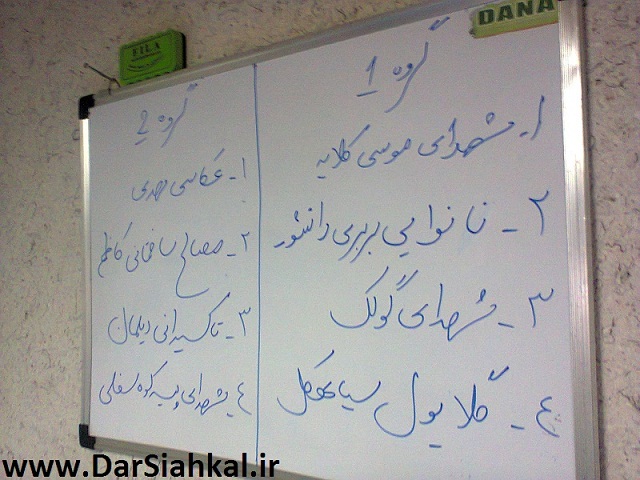 FILA
DANA
گروه 1
۱- شهدای موسی کلایه
۲- نانوایی بربری دانشور
۳- شهدای گولک
۴- گلایول سیاهکل
گروه 2
۱- عکاسی مهدی
۲- مصالح ساختمانی کاظم
۳- تاکسیرانی دیلمان
۴- شهدای پیرکوه سفلی
www.DarSiahkal.ir